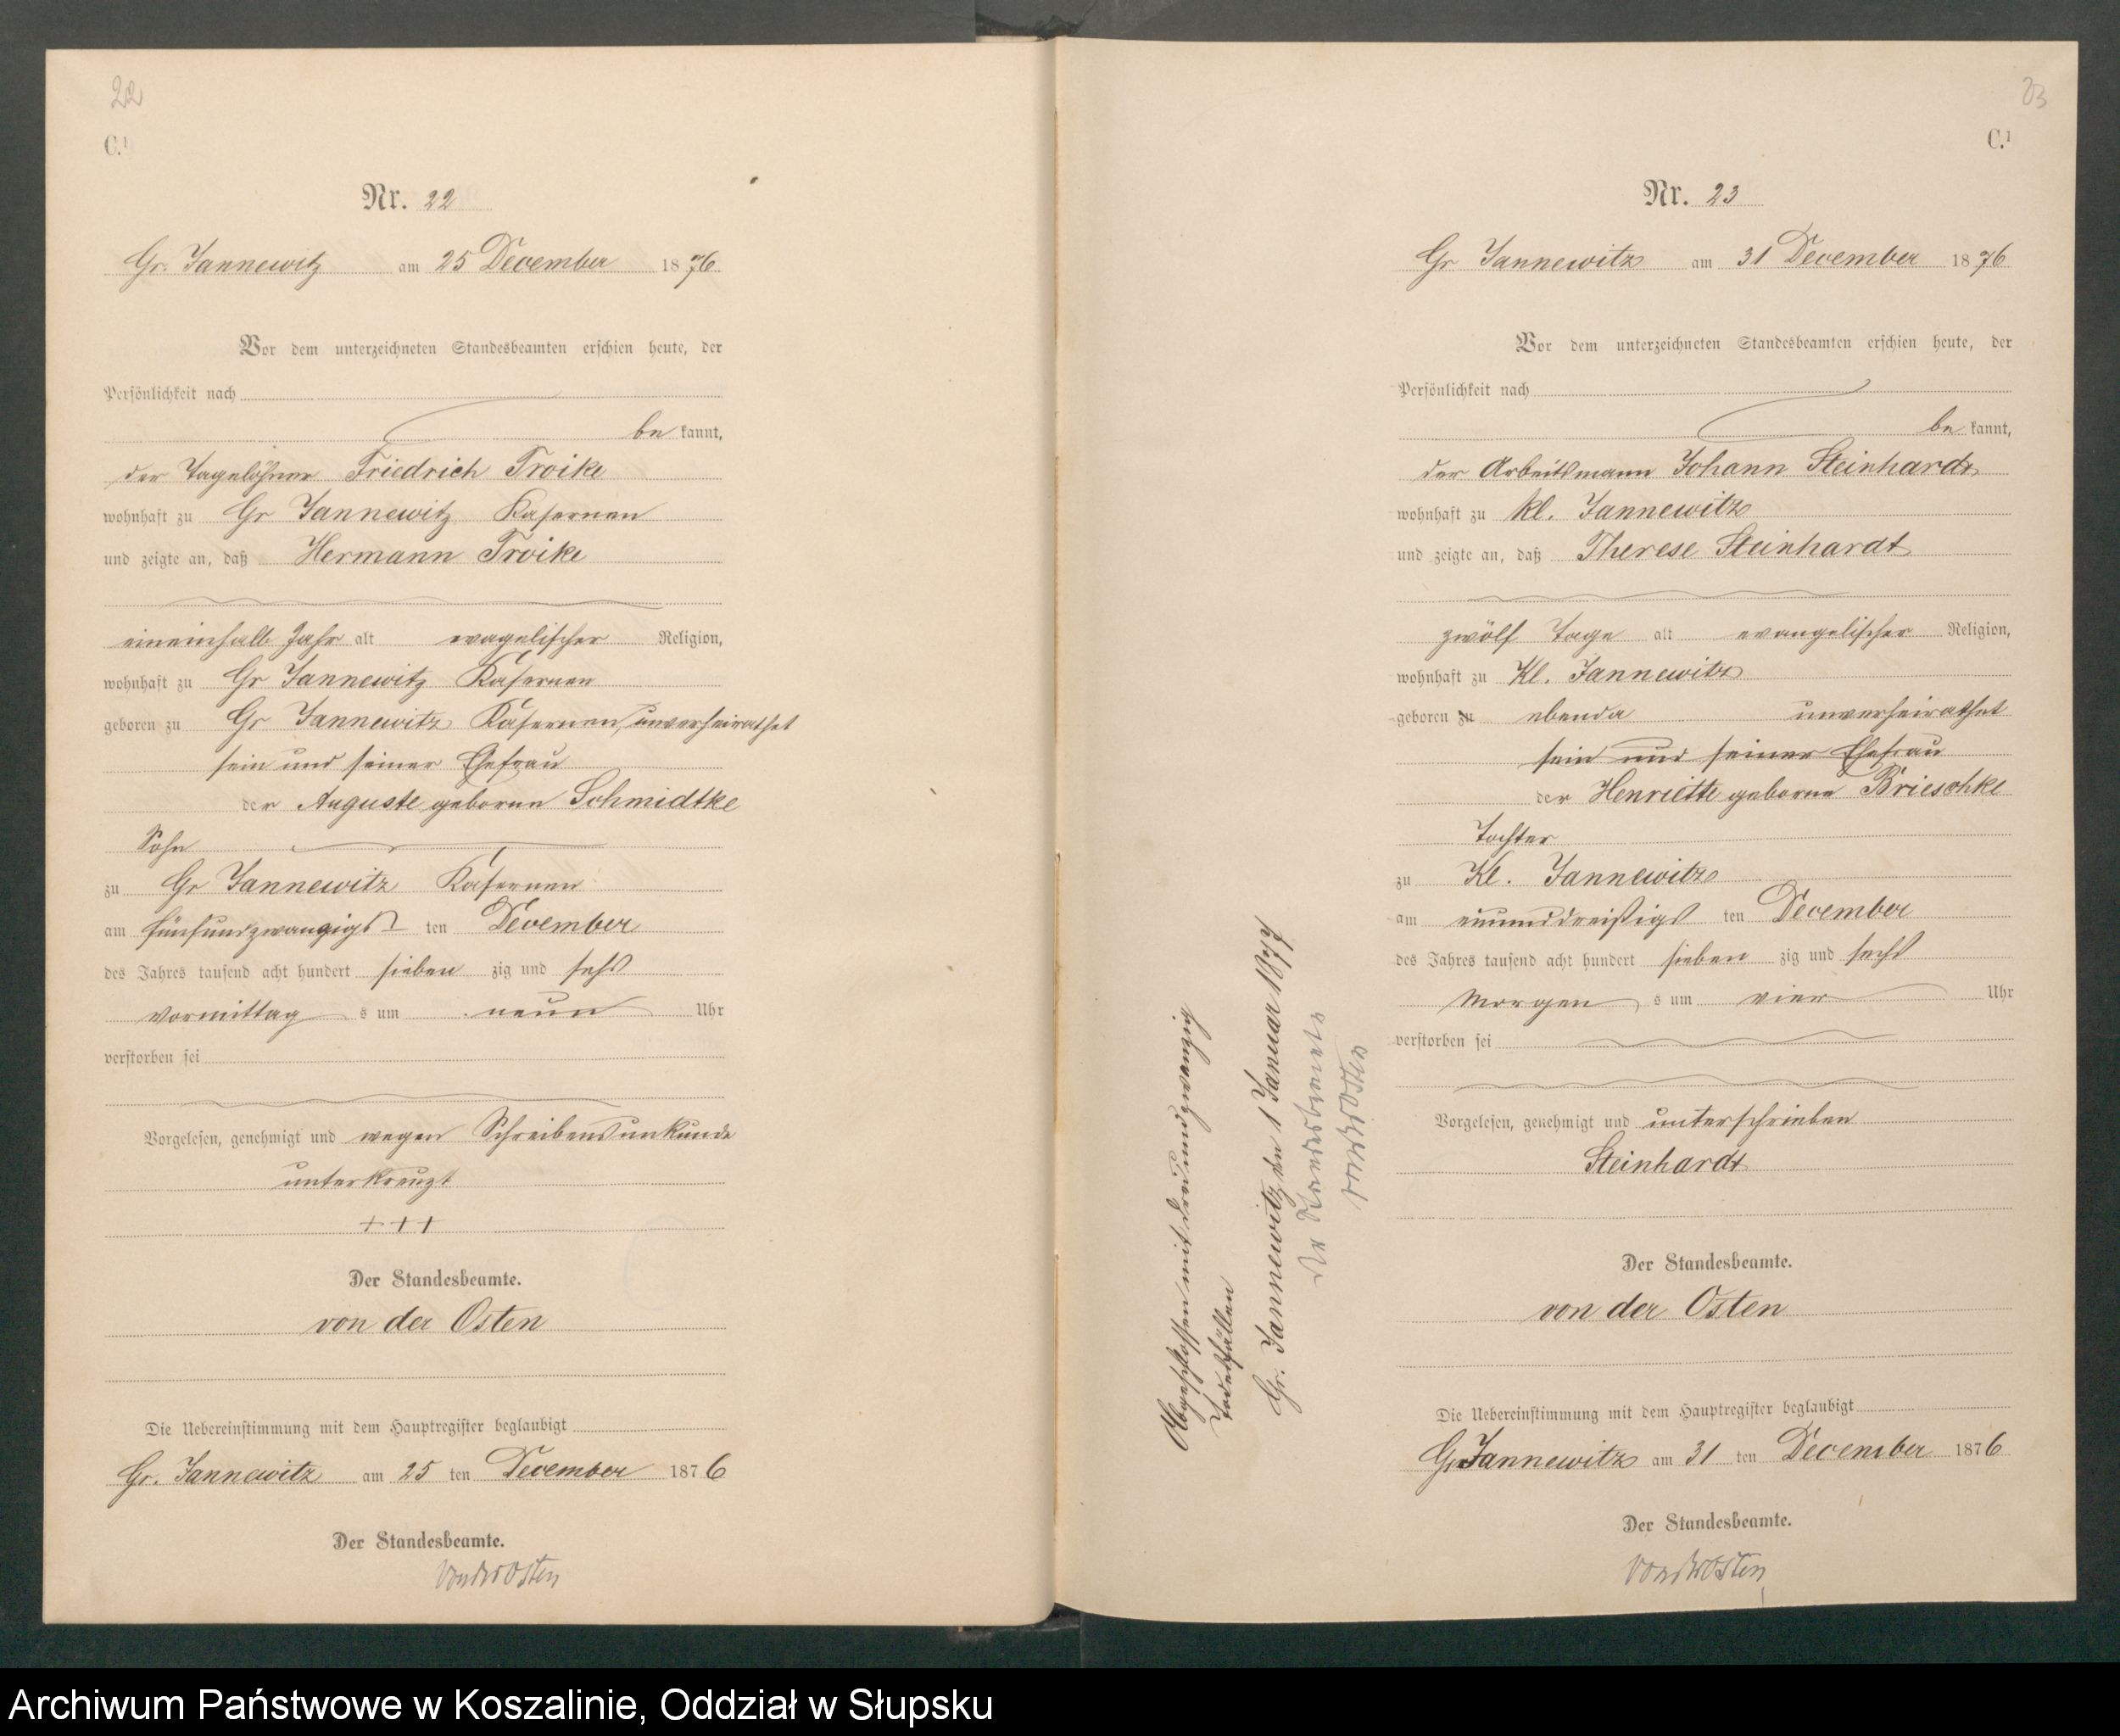 22
C.¹
Nr. 22
Gr. Jannewitz am 25 December 1876.
Vor dem unterzeichneten Standesbeamten erschien heute, der
Persönlichkeit nach
be kannt,
der Tagelöhner Friedrich Troike
wohnhaft zu Gr Jannewitz Kasernen
und zeigte an, daß Hermann Troike
eineinhalb Jahr alt evagelischer Religion,
wohnhaft zu Gr Jannewitz Kasernen
geboren zu Gr Jannewitz Kasernen, unverheirathet
sein und seiner Ehefrau
der Auguste geborne Schmidtke
Sohn
zu Gr Jannewitz Kasernen
am fünfundzwanzigs ten December
des Jahres tausend acht hundert sieben zig und sechs
Vormittag s um neun Uhr
verstorben sei
Vorgelesen, genehmigt und wegen Schreibensunkunde
unterkreuzt
+++
Der Standesbeamte.
von der Osten
Die Uebereinstimmung mit dem Hauptregister beglaubigt
Gr. Jannewitz am 25 ten December 1876
Der Standesbeamte.
von der Osten
23
C.¹
Nr. 23
Gr Jannewitz am 31 December 1876
Vor dem unterzeichneten Standesbeamten erschien heute, der
Persönlichkeit nach
be kannt,
der Arbeitsmann Johann Steinhardt,
wohnhaft zu Kl. Jannewitz
und zeigte an, daß Therese Steinhardt
zwölf Tage alt evangelischer Religion,
wohnhaft zu Kl. Jannewitz
geboren zu ebenda unverheirathet
sein und seiner Ehefrau
der Henriette geborne Brieschke
Tochter
zu Kl. Jannewitz
am einunddreißigs ten December
des Jahres tausend acht hundert sieben zig und sechs
Morgen s um vier Uhr
verstorben sei
Vorgelesen, genehmigt und unterschrieben
Steinhardt
Der Standesbeamte.
von der Osten
Die Uebereinstimmung mit dem Hauptregister beglaubigt
Gr Jannewitz am 31 ten December 1876
Der Standesbeamte.
von der Osten
Abgeschlossen mit dreiundzwanzig
Todesfällen
Gr. Jannewitz den 1 Januar 1877
Der Standesbeamte
von der Osten
Archiwum Państwowe w Koszalinie, Oddział w Słupsku